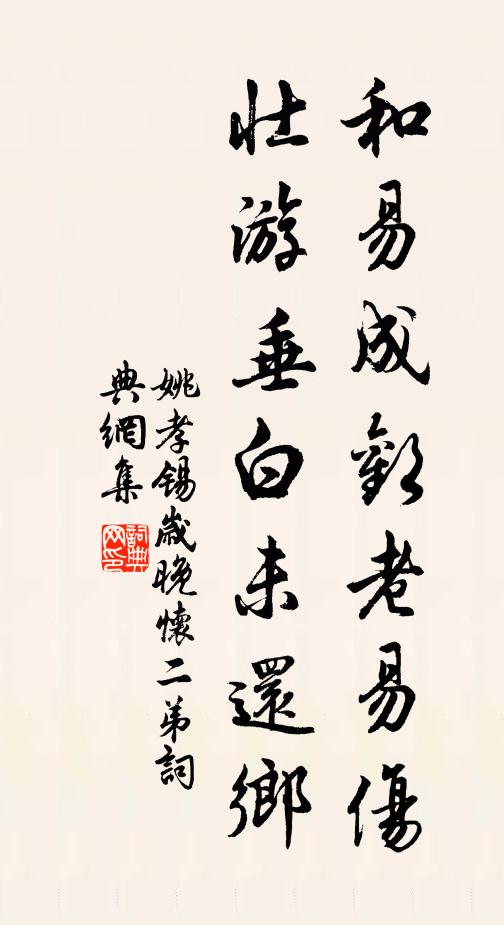 和易成歡老易傷
壯游垂白未還鄉
姚孝錫歲晚懷二弟詞
典網集
詞典
网印